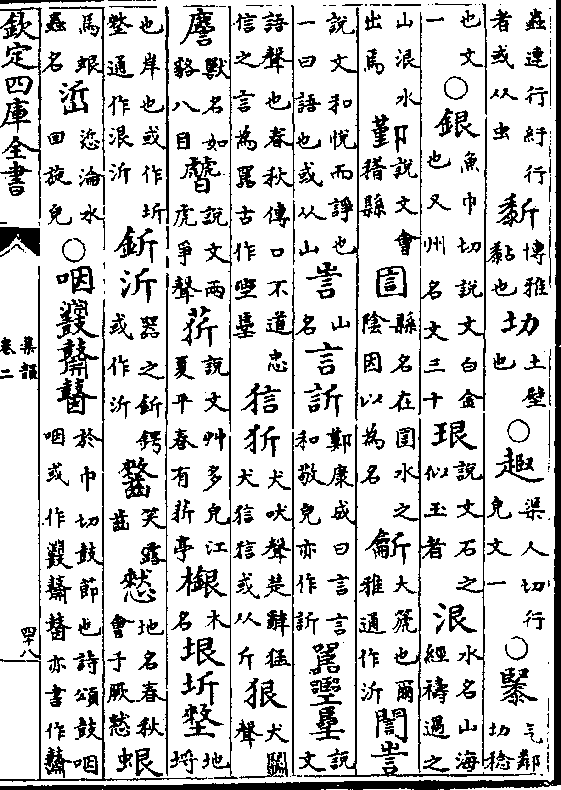 蟲連行紆行者或从虫 𪏰博雅黏也 㘦土壁也 ○趣渠人切行皃文一 ○緊乞鄰切䅟
也文一 ○銀魚巾切說文白金也又州名文三十 珢說文石之似玉者 泿水名山海經禱過之
山泿水出焉 鄞說文會稽縣 圁縣名在圁水之陰因以為名 龂大箎也爾雅通作沂 誾訔
說文和悅而諍也一曰語也或从山 訔山名 言訢鄭康成曰言言和敬皃亦作訢 嚚壡𡈁說文
語聲也春秋傳口不道忠信之言為嚚古作壡𡈁 狺犾犬吠聲楚辭猛犬狺狺或从斤 狠犬鬬聲
麐獸名如貉八目 䖐說文兩虎爭聲 菥說文艸多皃江夏平春有菥亭 檭木名 垠圻㙬地埒
也岸也或作圻㙬通作泿沂 釿沂器之釿鍔或作沂 齗笑露齒 憖地名春秋會于厥憖 蜄
馬蜄蟲名 㳂忩淪水回旋皃 ○咽鼝鼘鼞於巾切鼓節也詩頌鼓咽咽或作鼝鼘鼞亦書作鼘
欽定四庫全書
集韻
卷二
罕八